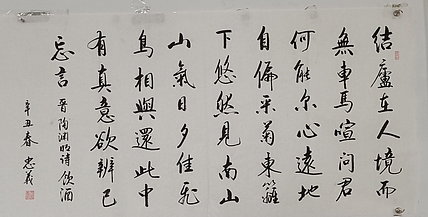 結廬在人境而
無車馬喧问君
何能尔心遠地
自偏采菊東籬
下悠然見南山
山氣日夕佳飛
鳥相與還此中
有真意欲辨已
忘言 晉陶渊明诗飲酒
辛丑春 忠義